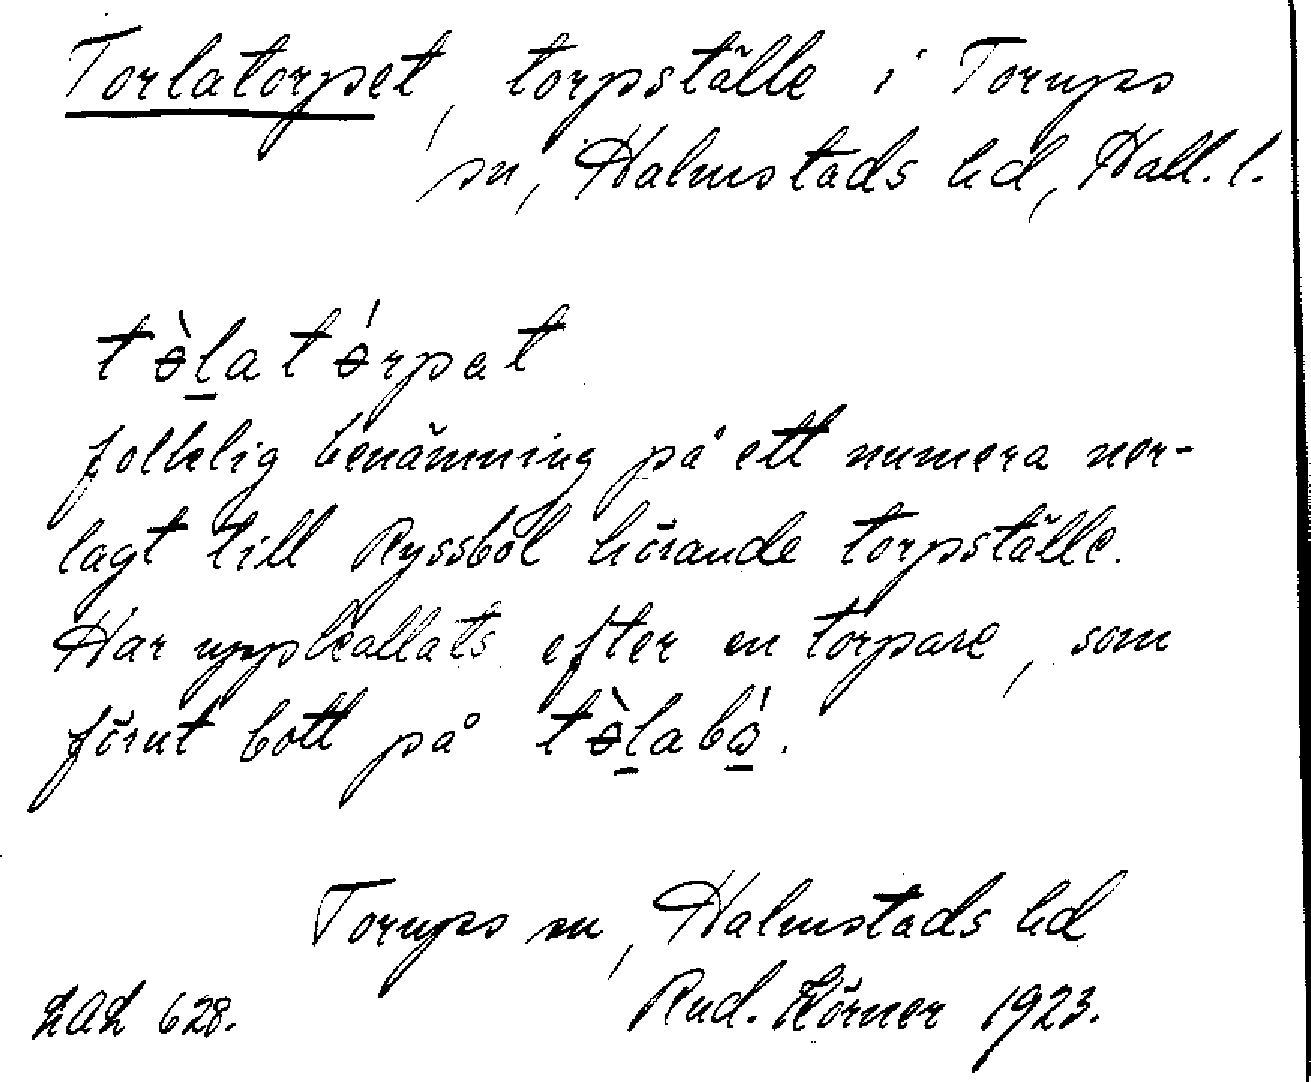 Torlatorpet, torpställe i Torups
sn, Halmstads hd, Hall. l.
tɵ̀l̠atɵ́rpat
folklig benämning på ett numera ner-
lagt till Ryssbol hörande torpställe.
Har uppkallats efter en torpare, som
förut bott på tɵ̀l̠abɵ̠́.
Torups sn, Halmstads hd
LAL 628. Rud. Hörner 1923.